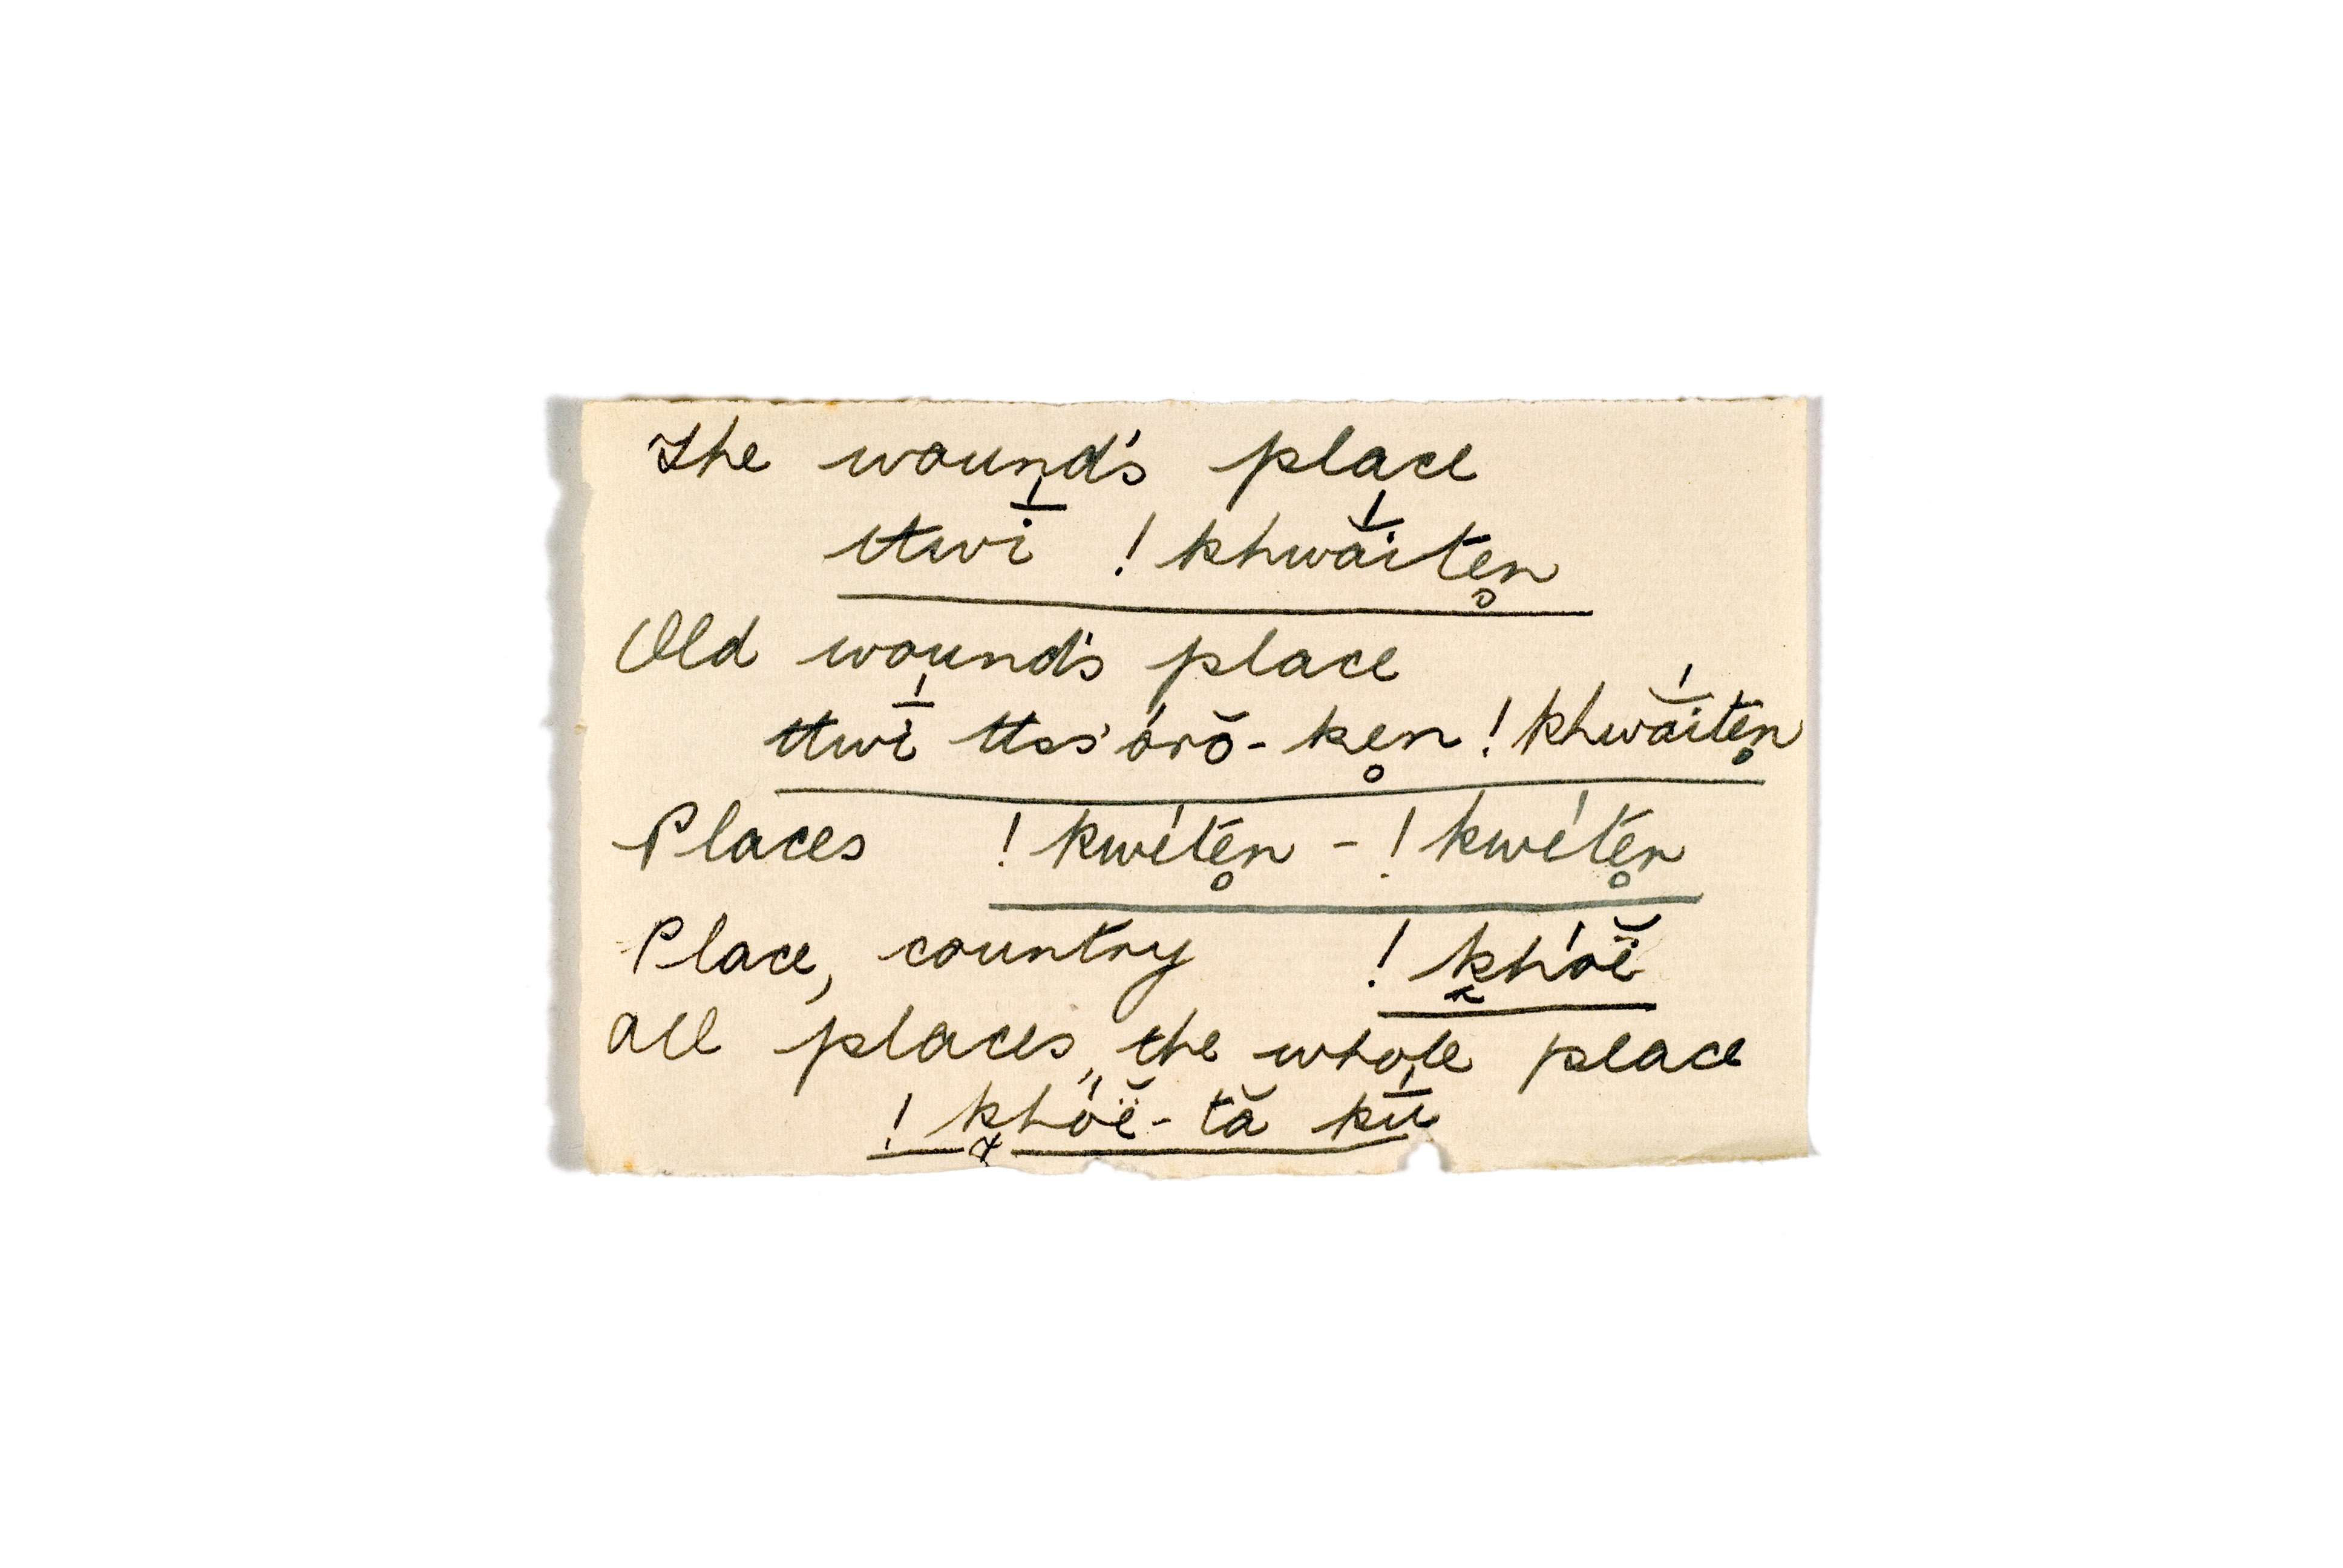 The wound's place
ttwī́ !khwā̆́itẹn̥
Old wound's place
ttwī́ ttss'órŏ-ken̥ !khwā̆́iten̥
Places !kwéten̥ - !kwéten̥
Place, country !k͓hóë̆
All places, the whole place
!k͓hóë̆-tă kū́